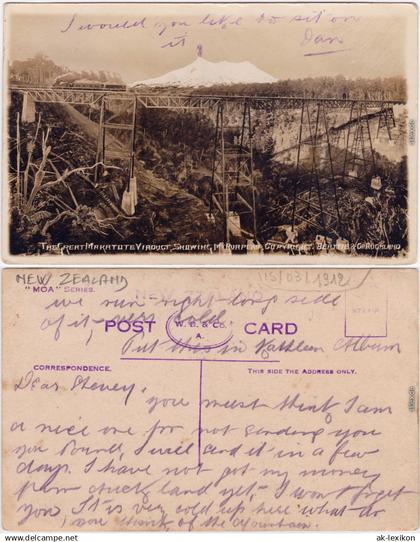 I would you like to sit on
it
Dan
THE GREAT MAKATOTE VIADUCT, SHOWING MT RUAPEHU. COPYRIGHT.
NEW ZEALAND
15/03/1912
"MOA" SERIES.
we run right long side
of it, very cold
POST W. B. & Co. A. CARD
STAMP
Put this in Kathleen Album
CORRESPONDENCE.
THIS SIDE THE ADDRESS ONLY.
Dear Stevey,
you must think I am
a nice one for not sending you
you Pound, I will send it in a few
days. I have not got my money
from Auckland yet, I wont forget
you, It is very cold up here what do
you think of the Mountain.
© ak-lexikon.com
ak-lexikon